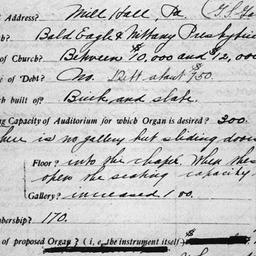 t Address? Mill Hall, Pa.
h? Bald Eagle & Nittany Presbyter
of Church? Between $10,000 and 12,00
of Debt? No. about $950.
h built of? Brick and slate.
g Capacity of Auditorium for which Organ is desired? 300.
There is no gallery but sliding doors
Floor? into the chapel. When these
open the seating capacity
Gallery? increased 100.
mbership? 170.
of proposed Organ? (i, e, the instrument itself)